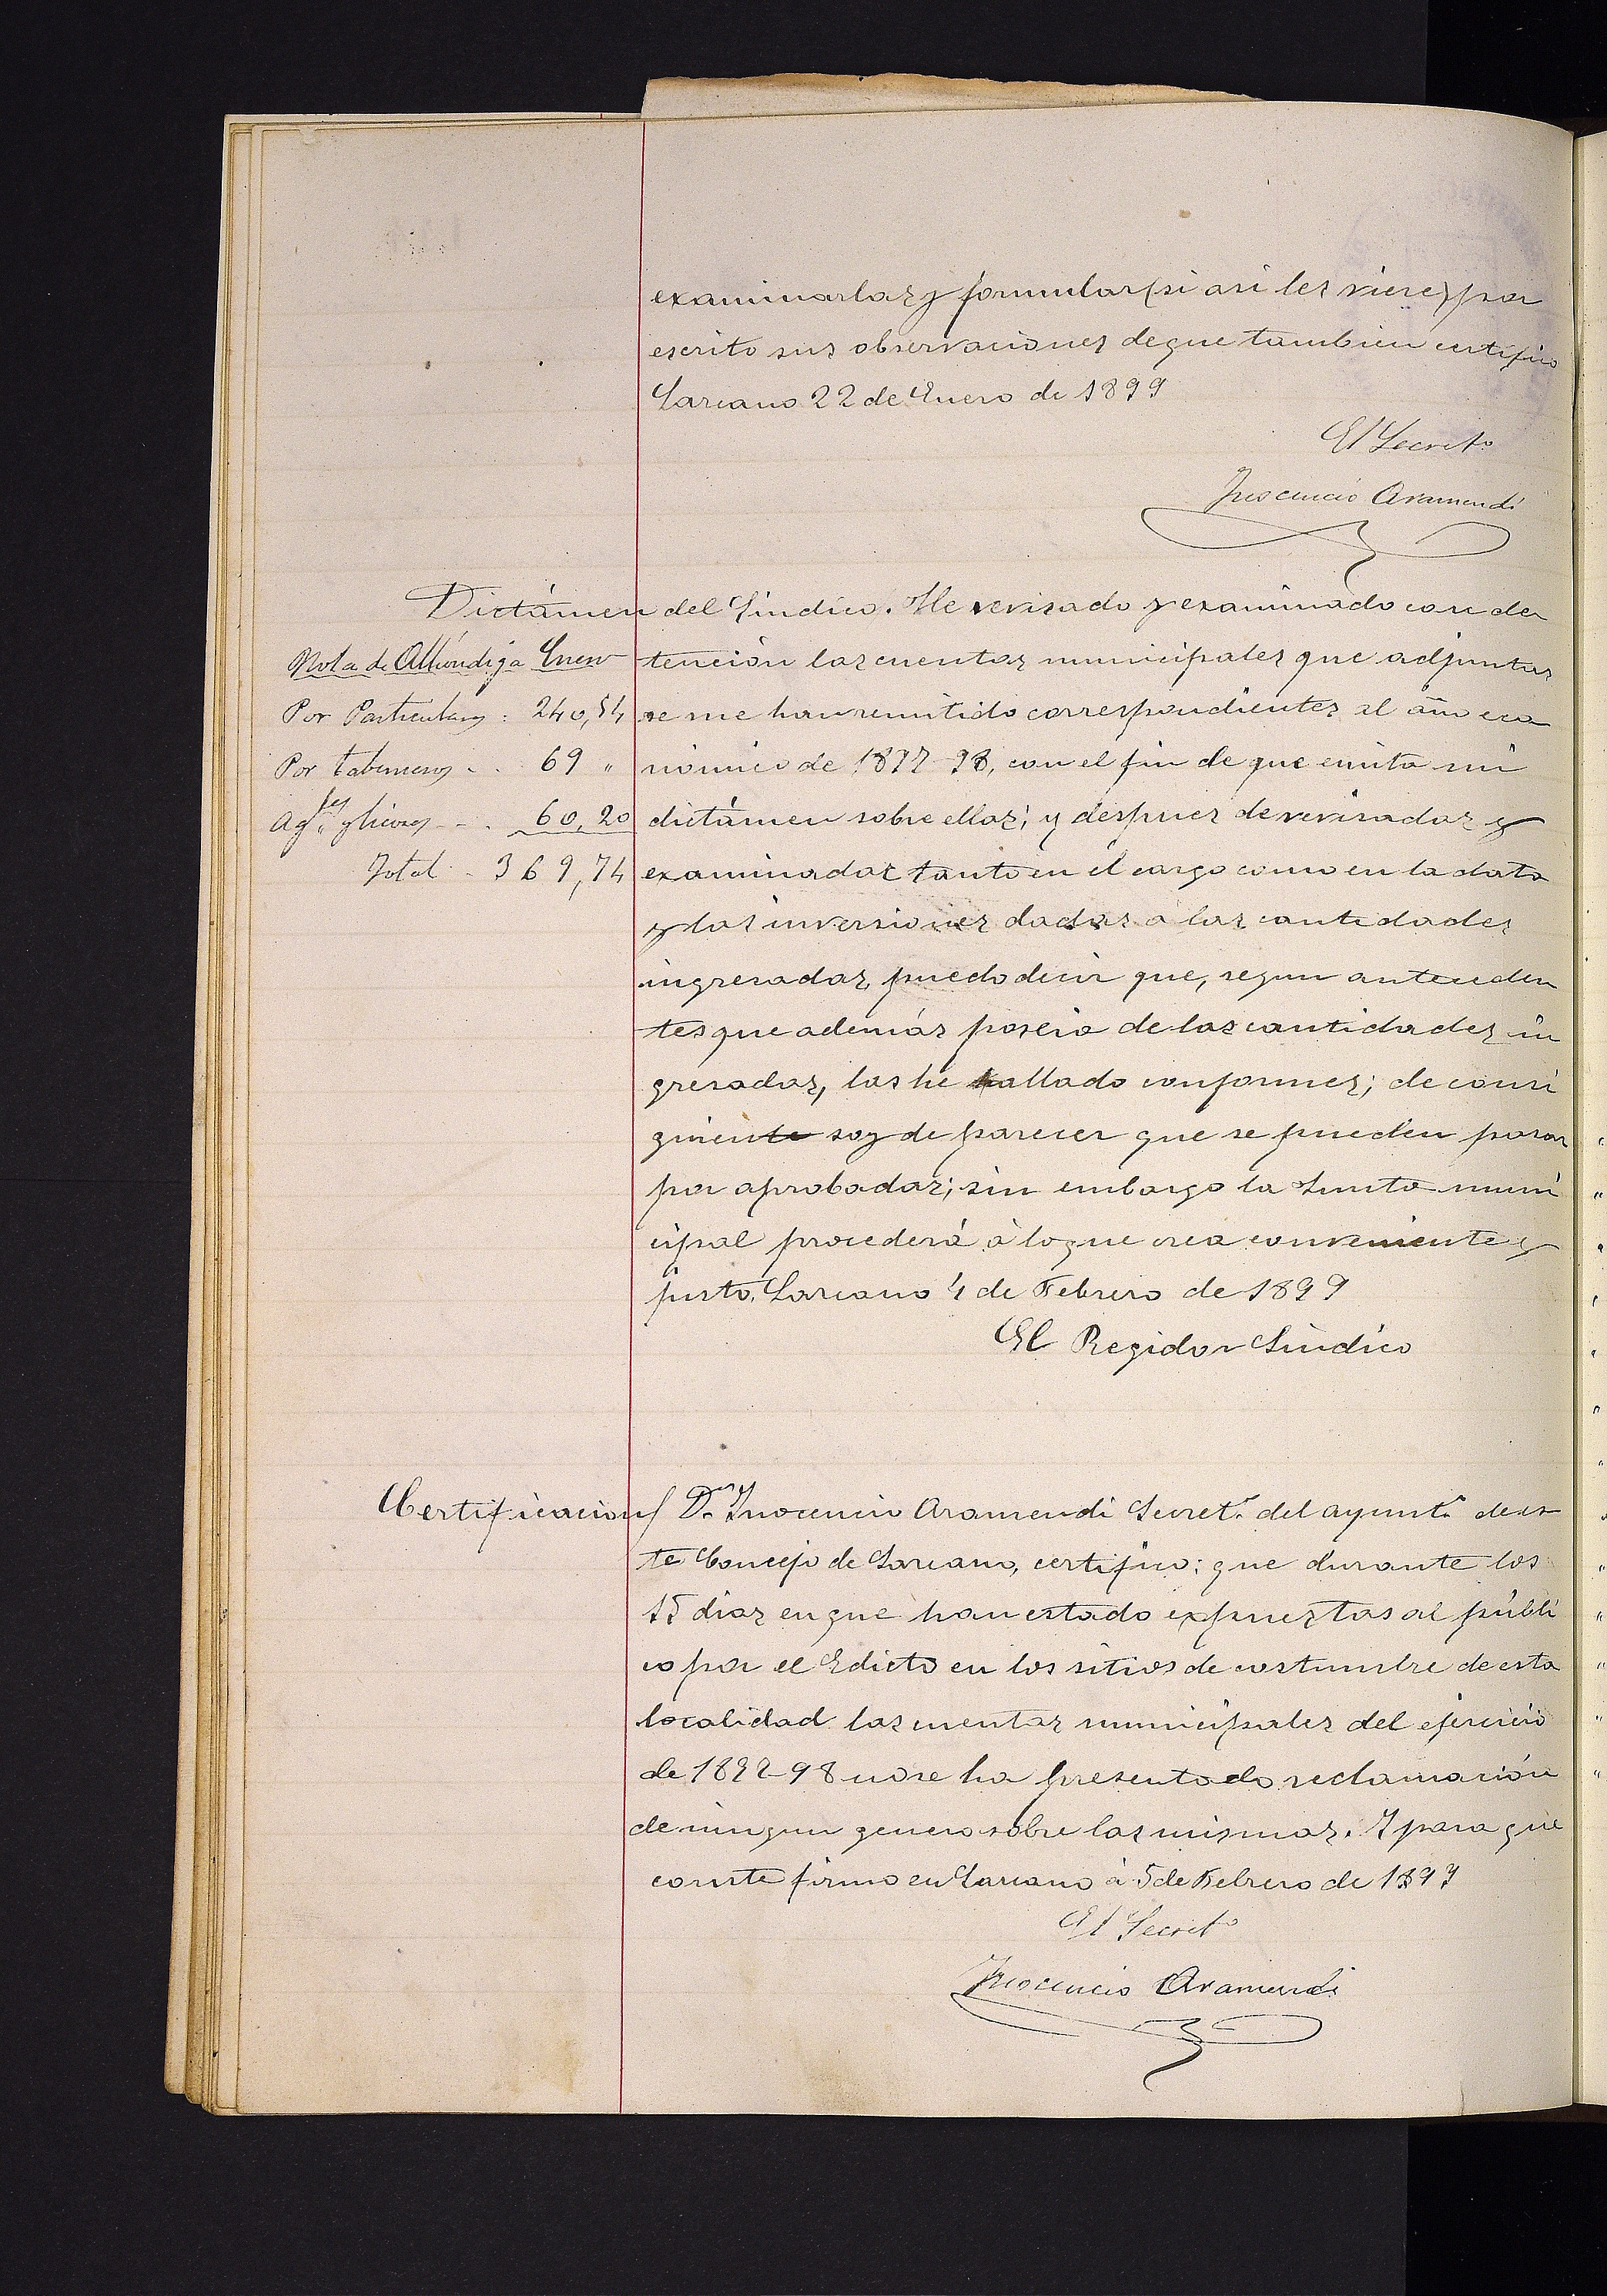 examinarlas y formular (si asi les viere) por
escrito sus observaciones de que tambien certifico
Larcano 22 de Enero de 1899
El Secret.º
Inocencio Aramendi
Dictámen del Síndico. He revisado y examinado con de
tención las cuentas municipales que adjuntas
se me han remitido correspondientes al año eco
nómico de 1897-98, con el fin de que emita mi
dictámen sobre ellas; y despues de revisadas y
examinadas tanto en el cargo como en la data
y las inversiones dadas á las cantidades
ingresadas, puedo decir que, segun anteceden
tes que además poseia de las cantidades in
gresadas, las he hallado conformes; de consi
guiente soy de parecer que se pueden pasar
por aprobadas; sin embargo la Junta muni
cipal procederá á lo que crea conveniente y
justo. Larcano 4 de Febrero de 1899
El Regidor Síndico
Nota de Alhóndiga Enero
Por Particulares : 240,54
Por taberneros - . 69 "
Ag.tes y licores - - . 60,20
Total - 369,74
Certificacion D. Inocencio Aramendi Secret.º del ayunt.º de es
te Concejo de Larcano, certifico: que durante los
15 dias en que han estado expuestas al públi
co por el Edicto en los sitios de costumbre de esta
localidad las cuentas municipales del ejercicio
de 1897-98 no se ha presentado reclamación
de ningun genero sobre las mismas. Y para que
conste firmo en Larcano á 5 de Febrero de 1899
El Secret.º
Inocencio Aramendi